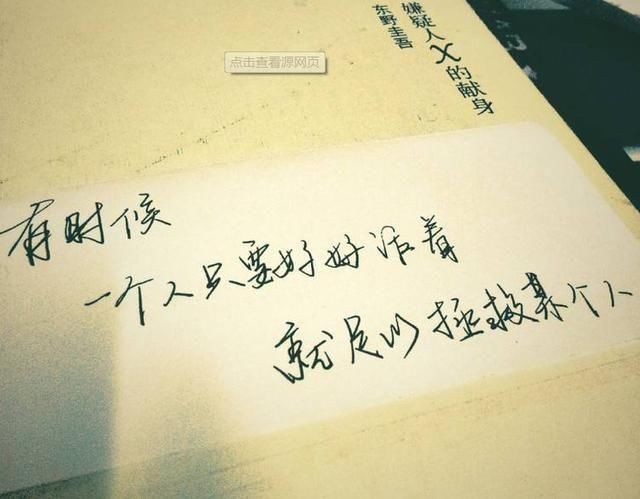 嫌疑人X的献身
东野圭吾
点击查看源网页
有时候
一个人只要好好活着
就足以拯救某个人